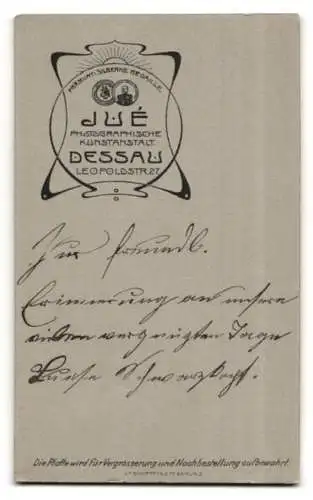 PRÄMIIRT: SILBERNE MEDAILLE.
JUÉ
PHOTOGRAPHISCHE
KUNSTANSTALT.
DESSAU
LEOPOLDSTR. 27.
Zur freundl.
Erinnerung an unsere
vielen vergnügten Tage
Luise Schwarzkopf.
Die Platte wird für Vergrösserung und Nachbestellung aufbewahrt.